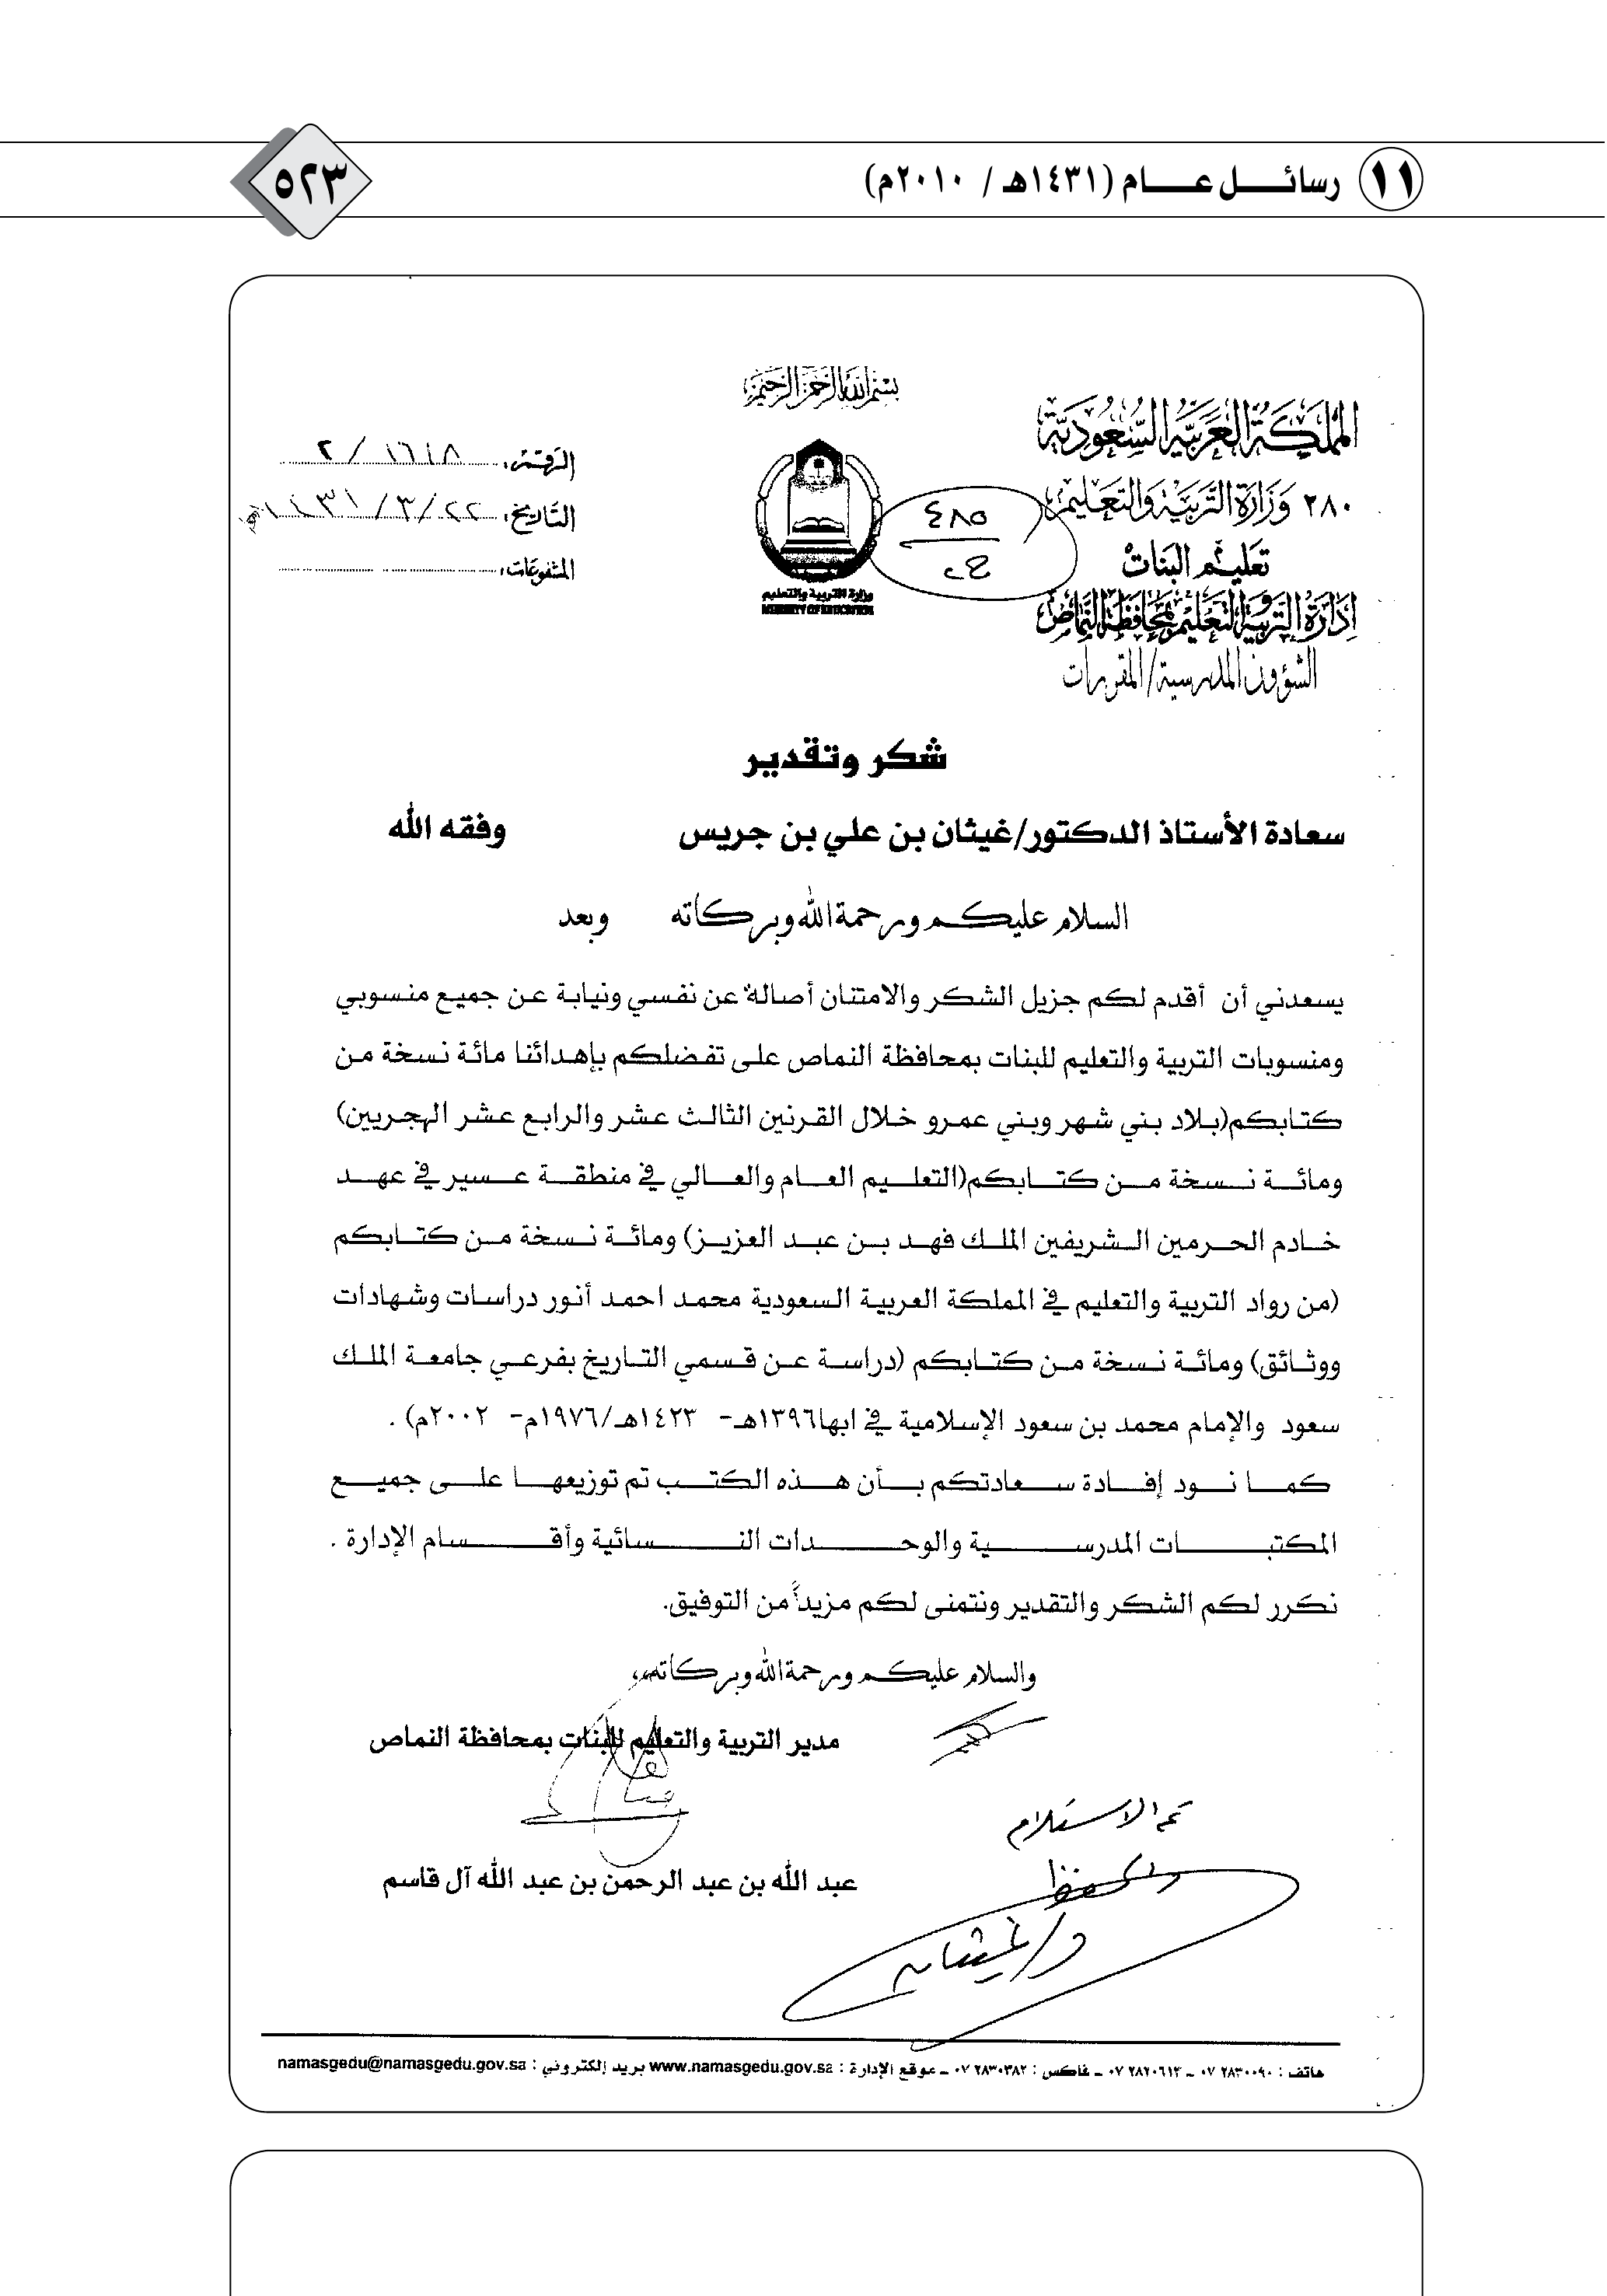 ١١ رسائل عام (١٤٣١هـ / ٢٠١٠م)
٥٢٣
بسم الله الرحمن الرحيم
المملكة العربية السعودية
٢٨٠ وزارة التربية والتعليم
تعليم البنات
إدارة التربية والتعليم بمحافظة النماص
الشؤون المدرسية/المقررات
وزارة التربية والتعليم
MINISTRY OF EDUCATION
٤٨٥
الرقم: ٢/١٦١٨
التاريخ: ١٤٣١/٣/٢٢هـ
المشفوعات:
شكر وتقدير
سعادة الأستاذ الدكتور/غيثان بن علي بن جريس وفقه الله
السلام عليكم ورحمة الله وبركاته وبعد
يسعدني أن أقدم لكم جزيل الشكر والامتنان أصالة عن نفسي ونيابة عن جميع منسوبي
ومنسوبات التربية والتعليم للبنات بمحافظة النماص على تفضلكم بإهدائنا مائة نسخة من
كتابكم(بلاد بني شهر وبني عمرو خلال القرنين الثالث عشر والرابع عشر الهجريين)
ومائة نسخة من كتابكم(التعليم العام والعالي في منطقة عسير في عهد
خادم الحرمين الشريفين الملك فهد بن عبد العزيز) ومائة نسخة من كتابكم
(من رواد التربية والتعليم في المملكة العربية السعودية محمد احمد أنور دراسات وشهادات
ووثائق) ومائة نسخة من كتابكم (دراسة عن قسمي التاريخ بفرعي جامعة الملك
سعود والإمام محمد بن سعود الإسلامية في ابها١٣٩٦هـ- ١٤٢٣هـ/١٩٧٦م- ٢٠٠٢م) .
كما نود إفادة سعادتكم بأن هذه الكتب تم توزيعها على جميع
المكتبات المدرسية والوحدات النسائية وأقسام الإدارة .
نكرر لكم الشكر والتقدير ونتمنى لكم مزيداً من التوفيق.
والسلام عليكم ورحمة الله وبركاته،،
مدير التربية والتعليم للبنات بمحافظة النماص
عبد الله بن عبد الرحمن بن عبد الله آل قاسم
تم الاستلام
د/غيثان
هاتف : ٠٧ ٢٨٣٠٠٩٠ ـ ٠٧ ٢٨٢٠٦١٣ ـ فاكس : ٠٧ ٢٨٣٠٣٨٢ ـ موقع الإدارة : www.namasgedu.gov.sa بريد إلكتروني : namasgedu@namasgedu.gov.sa